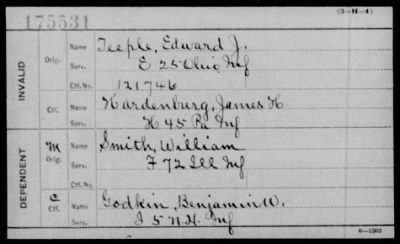 175531
(3-M-4)
INVALID
Orig.
Name Teeple, Edward J.
Serv. E 25 Ohio Inf
Ctf. No. 121746
Ctf.
Name Hardenburg, James H.
Serv. H 45 Pa Inf
DEPENDENT
M
Orig.
Name Smith, William
Serv. F 72 Ill Inf
Ctf. No.
C
Ctf.
Name Godkin, Benjamin W.
Serv. I 5 N.H. Inf